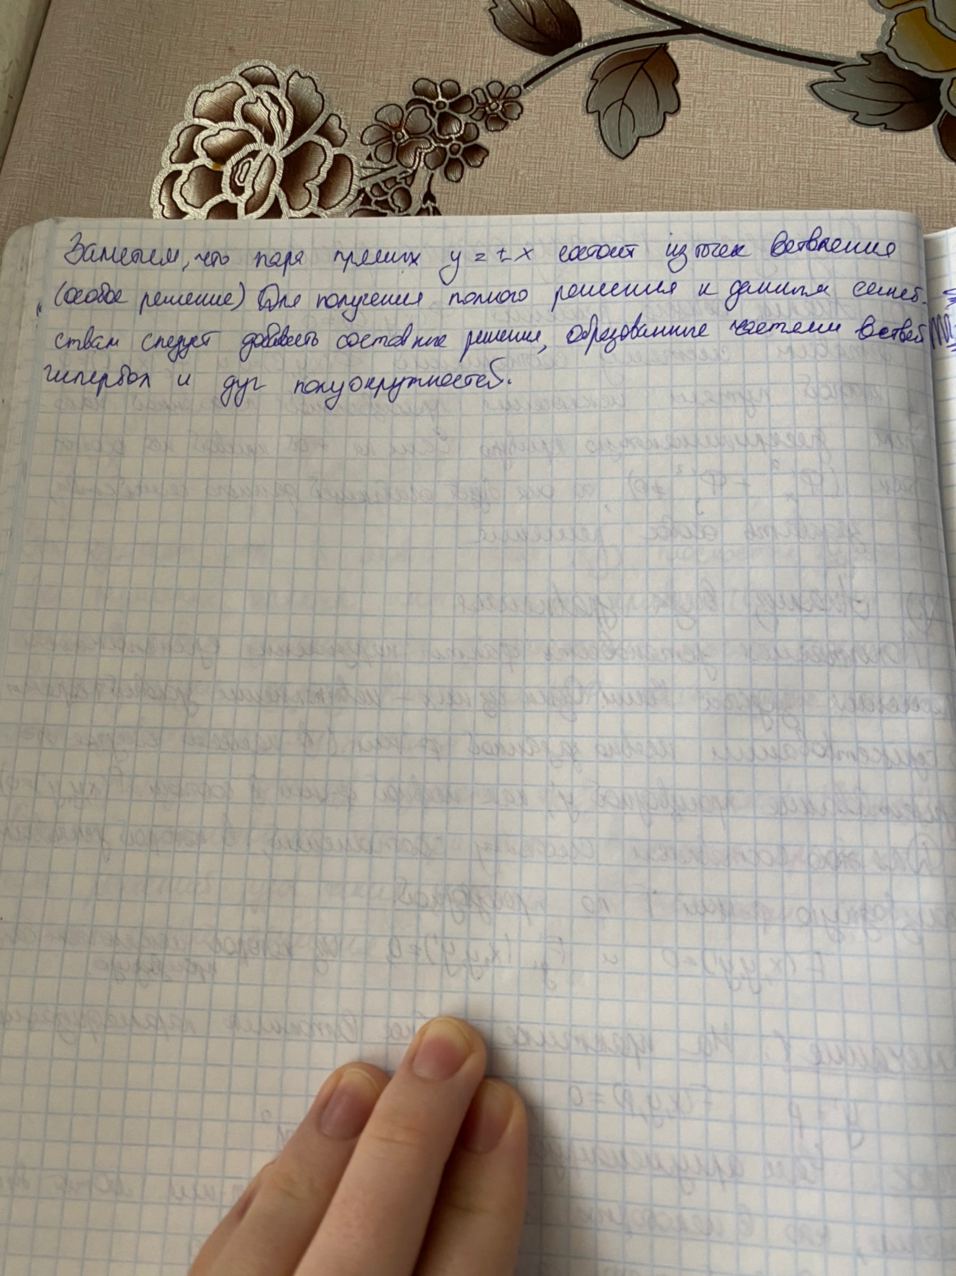 Заметим, что пара прямых y = ± x состоит из точек ветвления
(особое решение) Для получения полного решения к данным семей-
ствам следует добавить составные решения, образованные частями ветвей
гипербол и дуг полуокружностей.